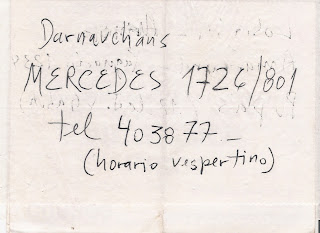 Darnauchans
MERCEDES 1726/801
tel 403877_
(horario vespertino)